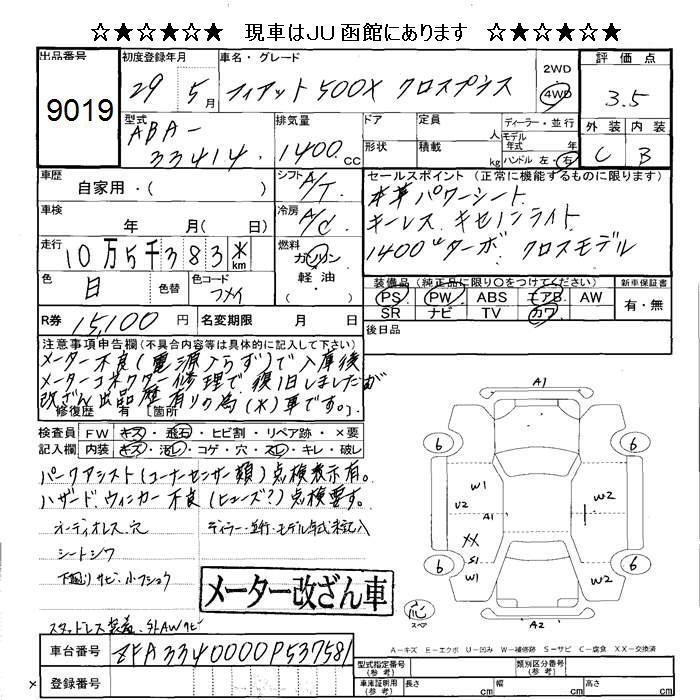 ☆★☆★☆★ 現車はJU函館にあります ☆★☆★☆★
出品番号 初度登録年月 車名・グレード 2WD 評価点
9019 29 5月 フィアット 500X クロスプラス 4WD 3.5
型式 排気量 ドア 定員 ディーラー・並行 外装 内装
ABA- 人 モデル年式 年
33414. 1400.cc 形状 積載 kg ハンドル 左・右 C B
車歴 シフト A/T セールスポイント (正常に機能するものに限ります)
自家用・( ) 本革パワーシート
車検 年 月( 日) 冷房 A/C キーレス キセノンライト
走行 10万5千383* km 燃料 ガソリン 軽油・( ) 1400ccターボ クロスモデル
色 白 色替 色コード フメイ 装備品 (純正品に限り○をつけてください) 新車保証書
PS PW ABS エアB AW 有・無
SR ナビ TV カワ
R券 15,100円 名変期限 月 日 後日品
注意事項申告欄(不具合内容等は具体的に記入して下さい)
メーター不良(電源入らず)で入庫後
メーターコネクター修理で復旧しましたが
改ざん出品歴有りの為(*)車です。
修復歴 有 [箇所 ]
検査員 FW キズ・飛石・ヒビ割・リペア跡・×要
記入欄 内装 キズ・汚レ・コゲ・穴・スレ・キレ・破レ
パークアシスト(コーナーセンサー類)点検表示有。
ハザード、ウィンカー不良(ヒューズ?)点検要す。
オーディオレス、穴 ディーラー・並行・モデル年式未記入
シートシワ
下廻りサビ・小フショク
メーター改ざん車
スタッドレス装着・外AWサビ
車台番号 ZFA3340000P537581
登録番号
A1
6 6
W1 W2
U2 A1 W2
XX
S1
W1
6 6
スペア
A2
A-キズ E-エクボ U-凹み W-補修跡 S-サビ C-腐食 XX-交換済
型式指定番号(参考) 類別区分番号(参考)
車庫証明用(参考) 長さ cm 幅 cm 高さ cm